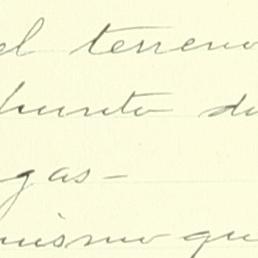 el terreno
punto de
gas-
mismo que